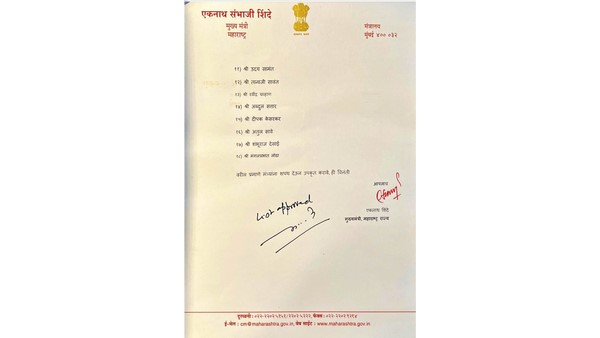 एकनाथ संभाजी शिंदे
मुख्य मंत्री
महाराष्ट्र
मंत्रालय
मुंबई ४०० ०३२
११) श्री उदय सामंत
१२) श्री तानाजी सावंत
१३) श्री रवींद्र चव्हाण
१४) श्री अब्दुल सत्तार
१५) श्री दीपक केसरकर
१६) श्री अतुल सावे
१७) श्री शंभूराज देसाई
१८) श्री मंगलप्रभात लोढा
वरील प्रमाणे सर्वांना शपथ देऊन उपकृत करावे, ही विनंती.
आपलाच
एकनाथ शिंदे
मुख्यमंत्री, महाराष्ट्र राज्य
Not approved
दूरध्वनी : ०२२-२२०२५१५१/२२०२५२२२, फॅक्स : ०२२-२२०२९२१४
ई-मेल : cm@maharashtra.gov.in, वेब साईट : www.maharashtra.gov.in